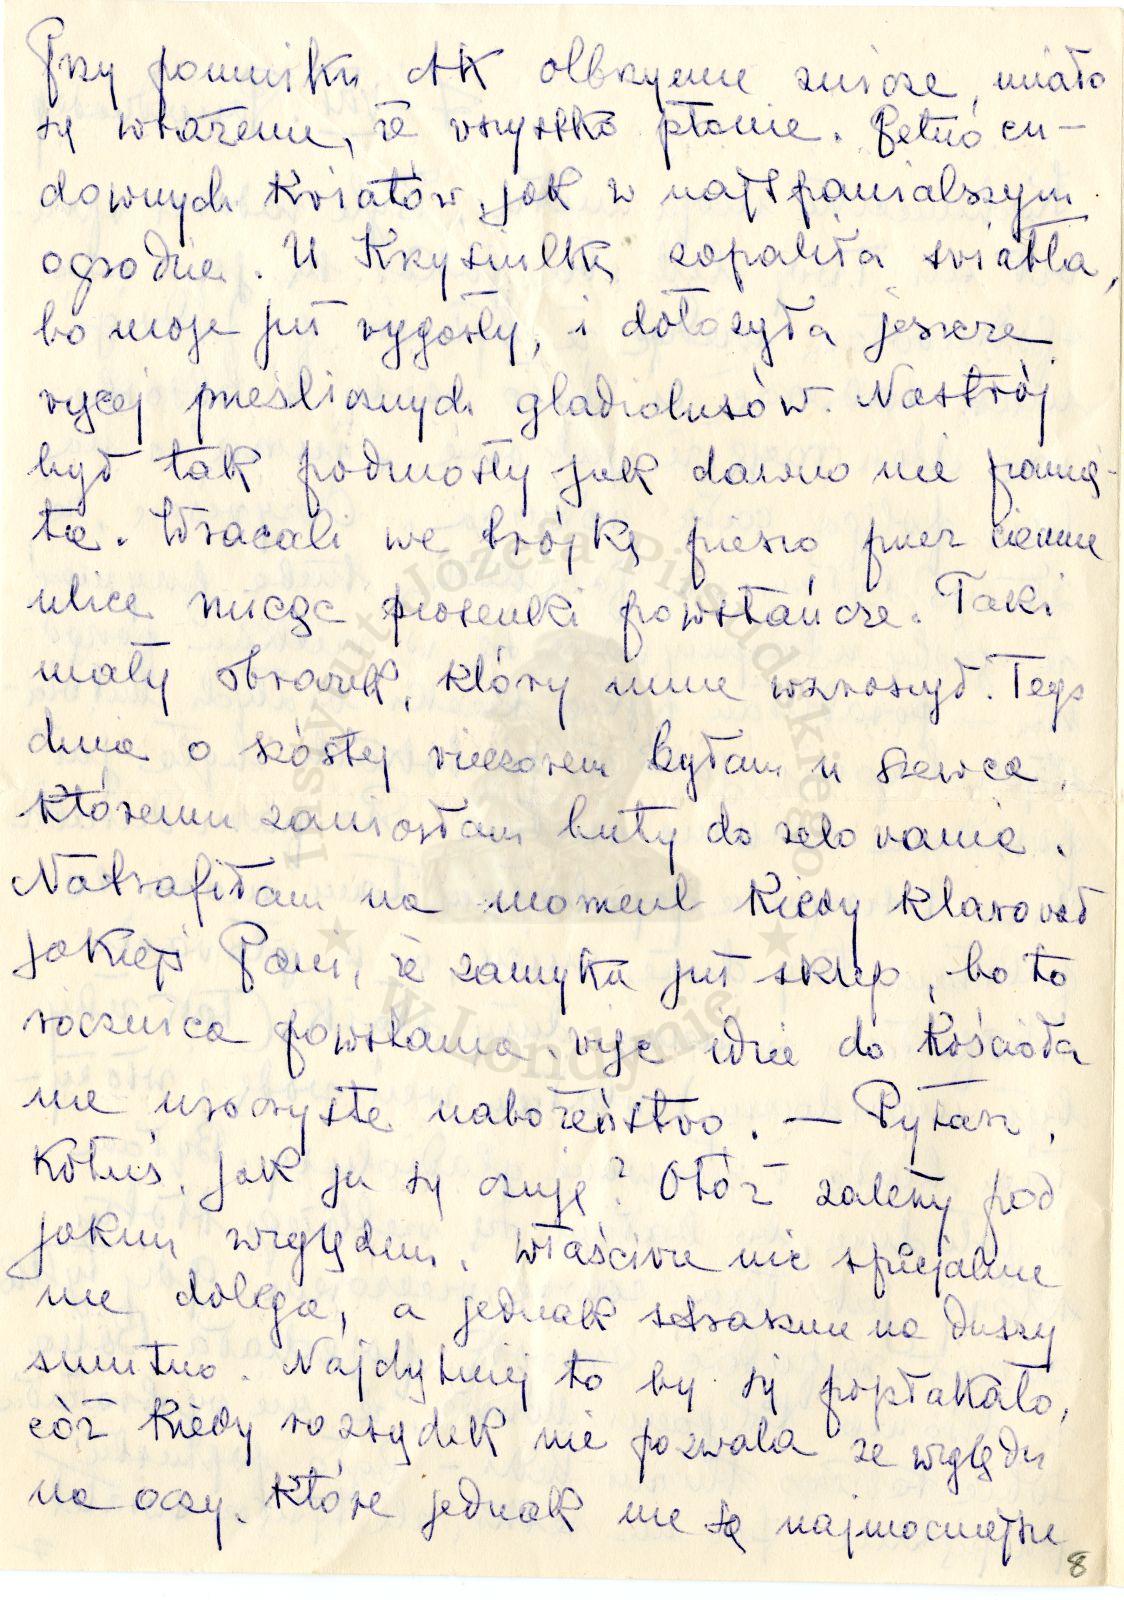 Przy pomniku AK olbrzymie znicze, miało
się wrażenie, że wszystko płonie. Pełno cu-
downych kwiatów, jak w najwspanialszym
ogrodzie. U Krysiulki zapaliła światła,
bo moje już wygasły, i dołożyła jeszcze
więcej prześlicznych gladiolusów. Nastrój
był tak podniosły jak dawno nie pamię-
ta. Wracali we trójkę pieszo przez ciemne
ulice nucąc piosenki powstańcze. Taki
mały obrazek, który mnie wzruszył. Tego
dnia o szóstej wieczorem byłam u szewca,
któremu zaniosłam buty do zelowania.
Natrafiłam na moment kiedy klarował
jakiejś Pani, że zamyka już sklep, bo to
rocznica powstania, więc idzie do Kościoła
na uroczyste nabożeństwo. — Pytasz,
Kotuś, jak ja się czuję? Otóż zależy pod
jakim względem. Właściwie nic specjalnie
nie dolega, a jednak strasznie na duszy
smutno. Najchętniej to by się popłakało,
cóż kiedy rozsądek nie pozwala ze względu
na oczy, które jednak nie są najmocniejsze
8
Instytut Józefa Piłsudskiego
★ w Londynie ★